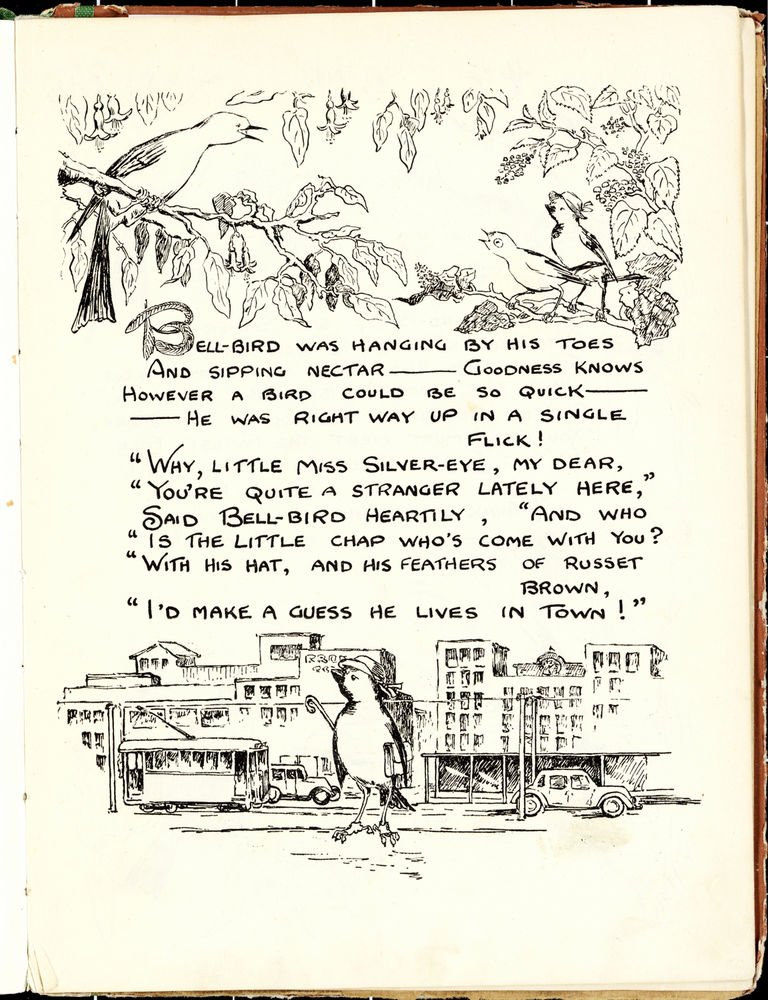 BELL-BIRD WAS HANGING BY HIS TOES
AND SIPPING NECTAR —— GOODNESS KNOWS
HOWEVER A BIRD COULD BE SO QUICK——
—— HE WAS RIGHT WAY UP IN A SINGLE
FLICK!
"WHY, LITTLE MISS SILVER-EYE, MY DEAR,
"YOU'RE QUITE A STRANGER LATELY HERE,"
SAID BELL-BIRD HEARTILY, "AND WHO
"IS THE LITTLE CHAP WHO'S COME WITH YOU?
"WITH HIS HAT, AND HIS FEATHERS OF RUSSET
BROWN,
"I'D MAKE A GUESS HE LIVES IN TOWN!"